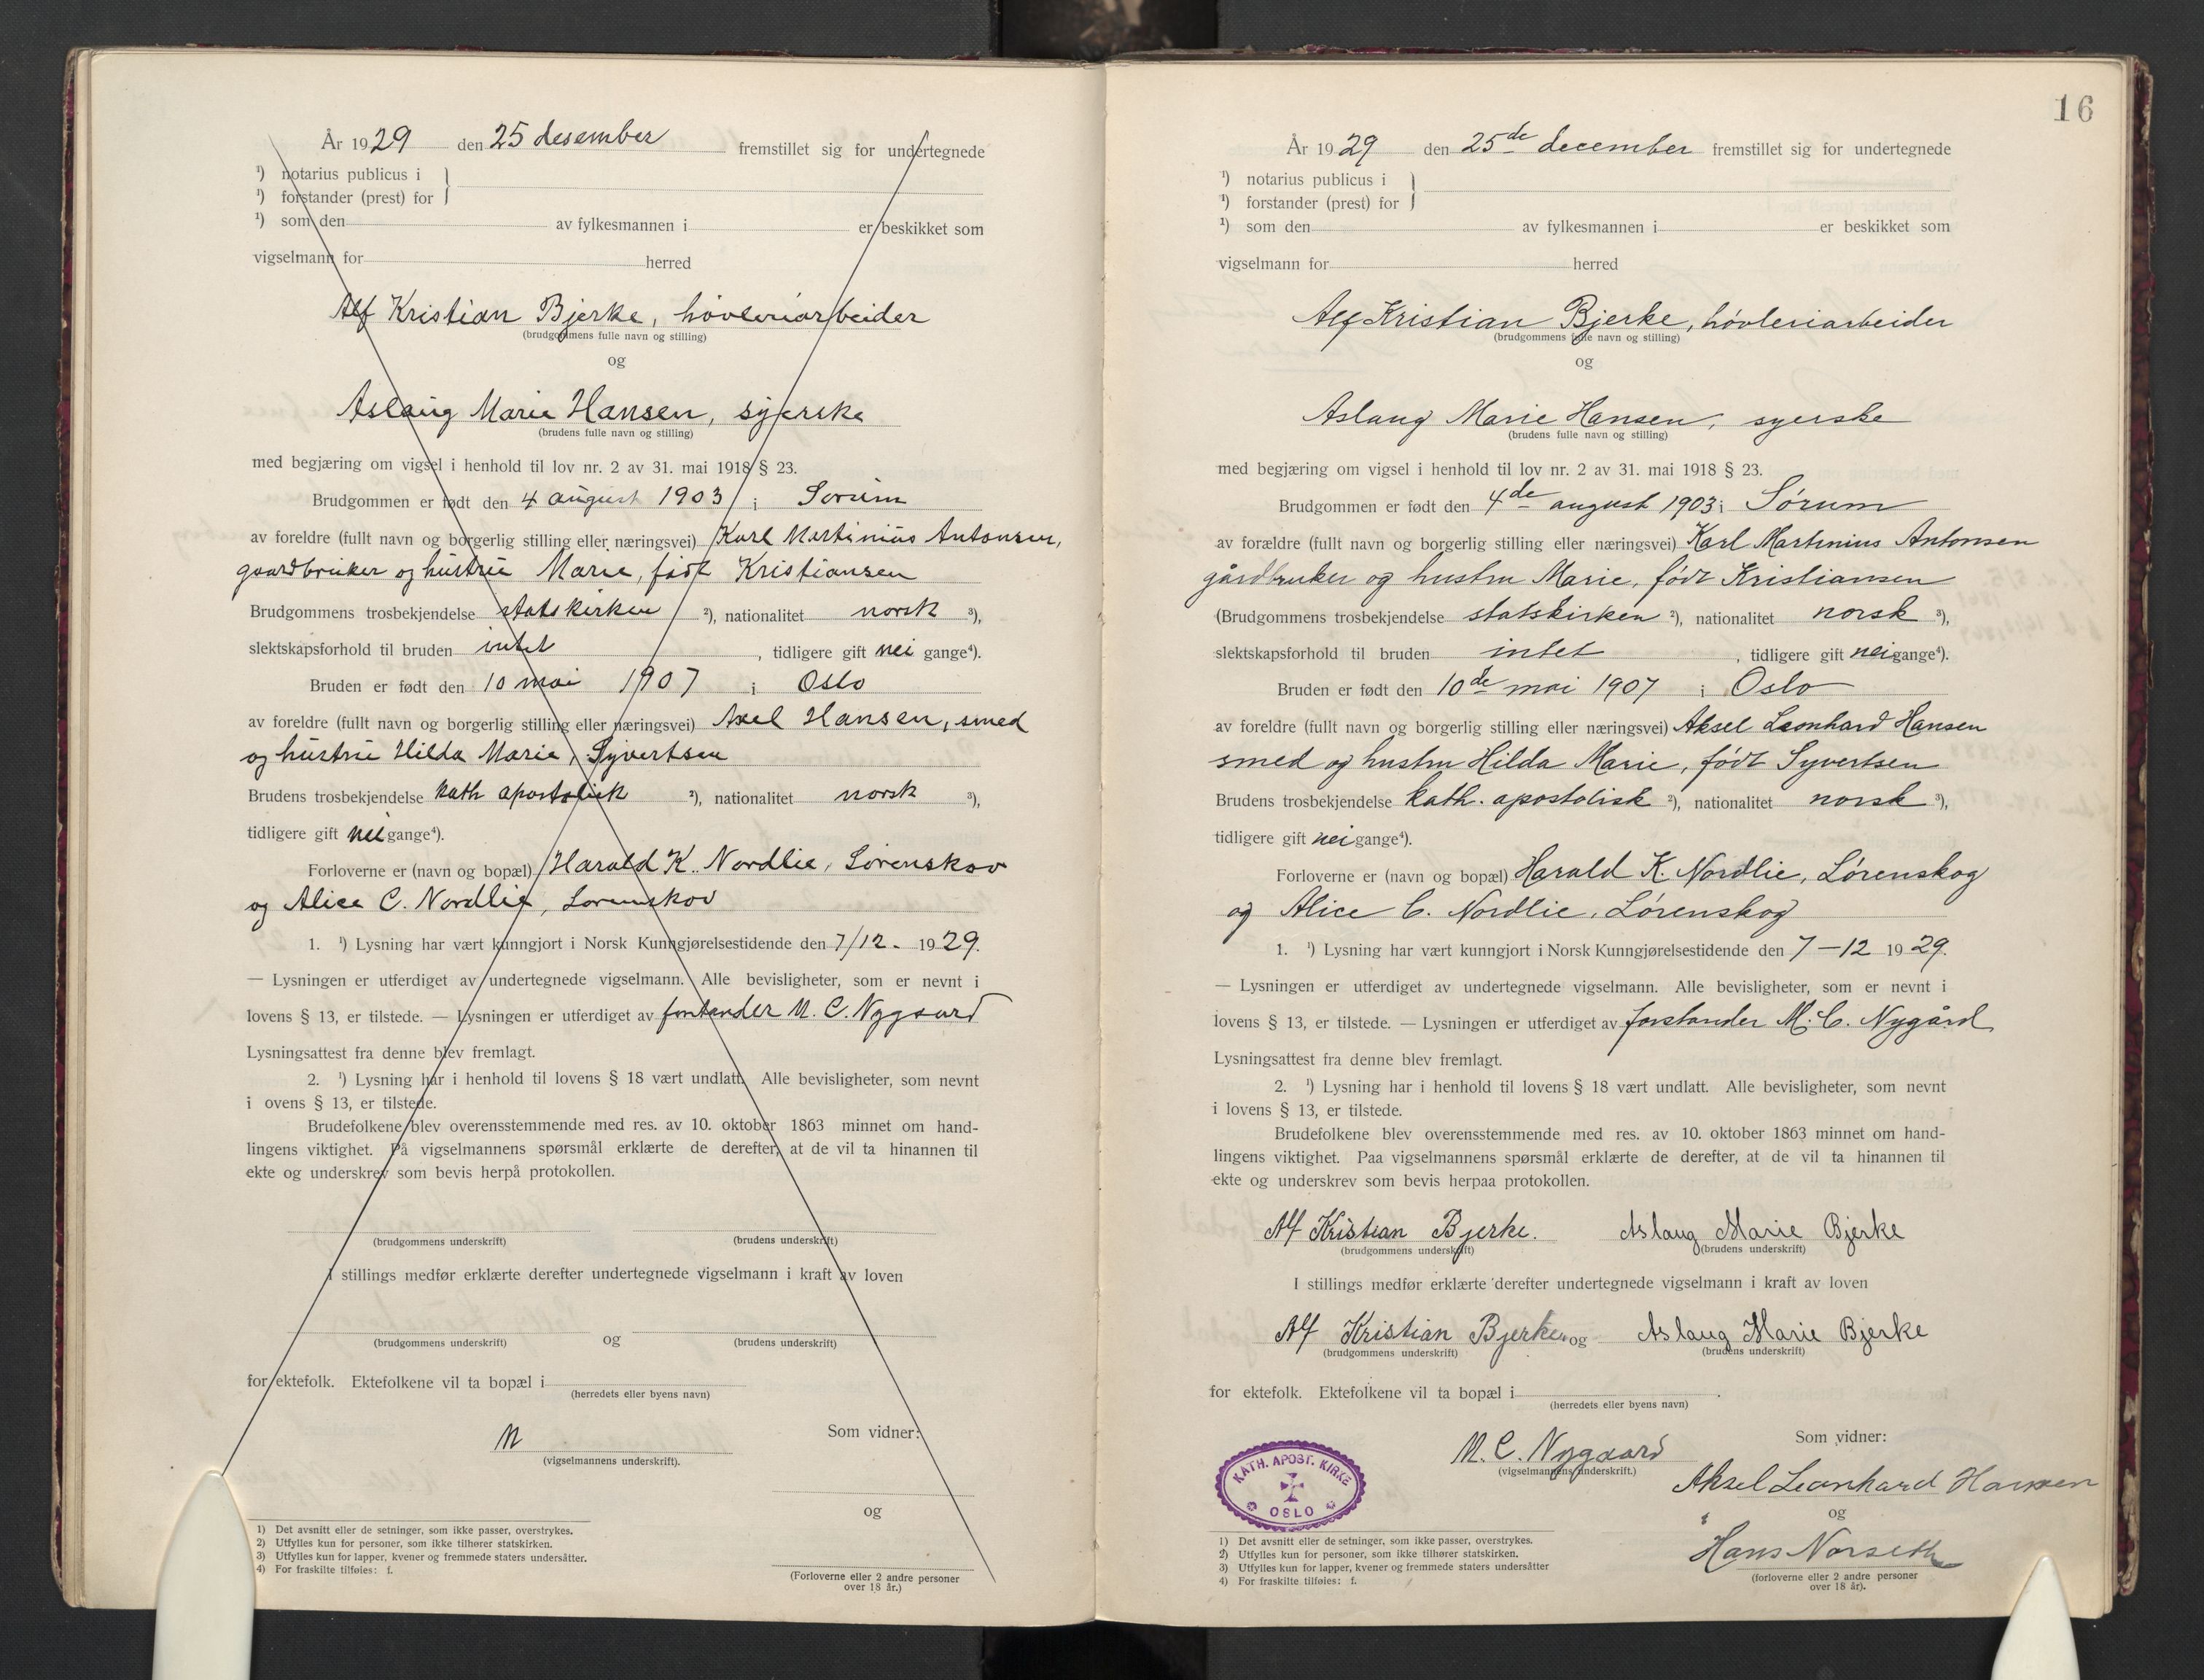 År 1929 den 25 desember fremstillet sig for undertegnede
¹) notarius publicus i
¹) forstander (prest) for
¹) som den av fylkesmannen i er beskikket som
vigselmann for herred
Alf Kristian Bjerke, høvleriarbeider
(brudgommens fulle navn og stilling)
og
Aslaug Marie Hansen, syerske
(brudens fulle navn og stilling)
med begjæring om vigsel i henhold til lov nr. 2 av 31. mai 1918 § 23.
Brudgommen er født den 4 august 1903 i Sørum
av foreldre (fullt navn og borgerlig stilling eller næringsvei) Karl Martinius Antonsen,
gaardbruker og hustru Marie, født Kristiansen
Brudgommens trosbekjendelse statskirken ²), nationalitet norsk ³),
slektskapsforhold til bruden intet , tidligere gift nei gange⁴).
Bruden er født den 10 mai 1907 i Oslo
av foreldre (fullt navn og borgerlig stilling eller næringsvei) Axel Hansen, smed
og hustru Hilda Marie, Syvertsen
Brudens trosbekjendelse kath apostolisk ²), nationalitet norsk ³),
tidligere gift nei gange⁴).
Forloverne er (navn og bopæl) Harald K. Nordlie, Lørenskov
og Alice C. Nordlie, Lørenskov
1. ¹) Lysning har vært kunngjort i Norsk Kunngjørelsestidende den 7/12. 1929.
— Lysningen er utferdiget av undertegnede vigselmann. Alle bevisligheter, som er nevnt i
lovens § 13, er tilstede. — Lysningen er utferdiget av forstander M. C. Nygaard
Lysningsattest fra denne blev fremlagt.
2. ¹) Lysning har i henhold til lovens § 18 vært undlatt. Alle bevisligheter, som nevnt
i ovens § 13, er tilstede.
Brudefolkene blev overensstemmende med res. av 10. oktober 1863 minnet om hand-
lingens viktighet. På vigselmannens spørsmål erklærte de derefter, at de vil ta hinannen til
ekte og underskrev som bevis herpå protokollen.
(brudgommens underskrift) (brudens underskrift)
I stillings medfør erklærte derefter undertegnede vigselmann i kraft av loven
og
(brudgommens underskrift) (brudens underskrift)
for ektefolk. Ektefolkene vil ta bopæl i
(herredets eller byens navn)
M
(vigselmannens underskrift).
Som vidner:
og
(Forloverne eller 2 andre personer
over 18 år.)
1) Det avsnitt eller de setninger, som ikke passer, overstrykes.
2) Utfylles kun for personer, som ikke tilhører statskirken.
3) Utfylles kun for lapper, kvener og fremmede staters undersåtter.
4) For fraskilte tilføies: f.
16
År 1929 den 25de december fremstillet sig for undertegnede
¹) notarius publicus i
¹) forstander (prest) for
¹) som den av fylkesmannen i er beskikket som
vigselmann for herred
Alf Kristian Bjerke, høvleriarbeider
(brudgommens fulle navn og stilling)
og
Aslaug Marie Hansen, syerske
(brudens fulle navn og stilling)
med begjæring om vigsel i henhold til lov nr. 2 av 31. mai 1918 § 23.
Brudgommen er født den 4de august 1903 i Sørum
av forældre (fullt navn og borgerlig stilling eller næringsvei) Karl Martinius Antonsen
gårdbruker og hustru Marie, født Kristiansen
(Brudgommens trosbekjendelse statskirken ²), nationalitet norsk ³),
slektskapsforhold til bruden intet , tidligere gift nei gange⁴).
Bruden er født den 10de mai 1907 i Oslo
av foreldre (fullt navn og borgerlig stilling eller næringsvei) Aksel Leonhard Hansen
smed og hustru Hilda Marie, født Syvertsen
Brudens trosbekjendelse kath. apostolisk ²), nationalitet norsk ³),
tidligere gift nei gange⁴).
Forloverne er (navn og bopæl) Harald K. Nordlie, Lørenskog
og Alice C. Nordlie, Lørenskog
1. ¹) Lysning har vært kunngjort i Norsk Kunngjørelsestidende den 7-12 1929.
— Lysningen er utferdiget av undertegnede vigselmann. Alle bevisligheter, som er nevnt i
lovens § 13, er tilstede. — Lysningen er utferdiget av forstander M. C. Nygård
Lysningsattest fra denne blev fremlagt.
2. ¹) Lysning har i henhold til lovens § 18 vært undlatt. Alle bevisligheter, som nevnt
i lovens § 13, er tilstede.
Brudefolkene blev overensstemmende med res. av 10. oktober 1863 minnet om hand-
lingens viktighet. Paa vigselmannens spørsmål erklærte de derefter, at de vil ta hinannen til
ekte og underskrev som bevis herpaa protokollen.
Alf Kristian Bjerke. Aslaug Marie Bjerke
(brudgommens underskrift) (brudens underskrift)
I stillings medfør erklærte derefter undertegnede vigselmann i kraft av loven
Alf Kristian Bjerke og Aslaug Marie Bjerke
(brudgommens underskrift) (brudens underskrift)
for ektefolk. Ektefolkene vil ta bopæl i .
(herredets eller byens navn)
M. C. Nygaard
(vigselmannens underskrift.)
Som vidner:
Aksel Leonhard Hansen
og
Hans Norseth
(forloverne eller 2 andre personer
over 18 år).
KATH. APOST. KIRKE
OSLO
1) Det avsnitt eller de setninger, som ikke passer, overstrykes.
2) Utfylles kun for personer, som ikke tilhører statskirken.
3) Utfylles kun for lapper, kvener og fremmede staters undersåtter
4) For fraskilte tilføies: f.